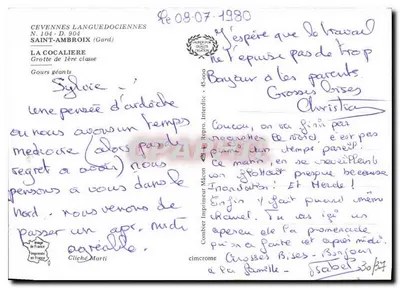 Le 09-07-1980
CEVENNES LANGUEDOCIENNES
N. 104 - D. 904
SAINT-AMBROIX (Gard)
LA COCALIERE
Grotte de 1ère classe
Gours géants
Sylvie
Une pensée d'ardèche
ou nous avons un temps
médiocre (alors pas de
regret a avoir) nous
pensons a vous dans le
Nord. nous venons de
passer un apr. midi
agréable.
Cliché Marti
Combier Imprimeur Mâcon
cimcrome
J'espère que le travail
ne t'épuise pas de trop
Bonjour a les parents
Grosses bises
Christian
Coucou, on va finir pas
regretter le Nord, c'est pas
un temps pareil!
ce matin, en se réveillant
on flottait presque because
Inondation! Et Merde!
Enfin y fait quand même
chaud. Tu vas
apercu de la promenade
qu'on a faite cet après midi.
Grosses Bises - Bonjour
a la famille - Isabel